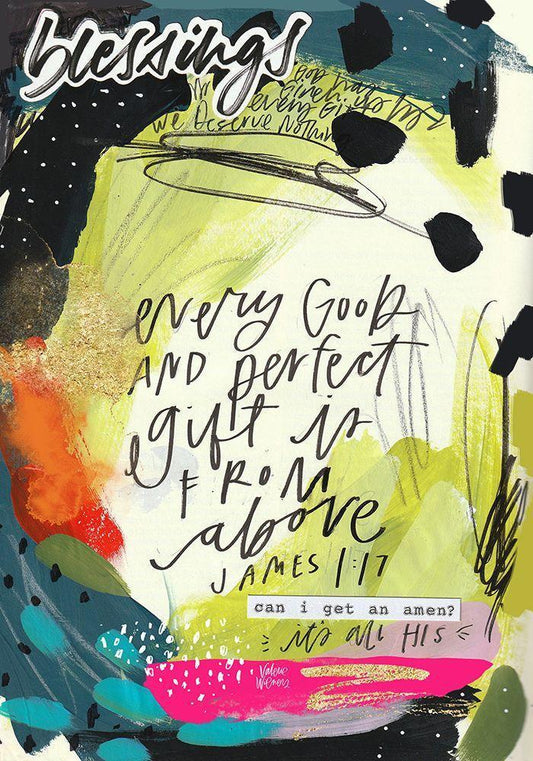 blessings
God has
given
every
we Deserve Nothin
every GOOD
AND perfect
gift is
FROM
above
JAMES 1:17
can i get an amen?
it's all HIS
Valerie
Wieners